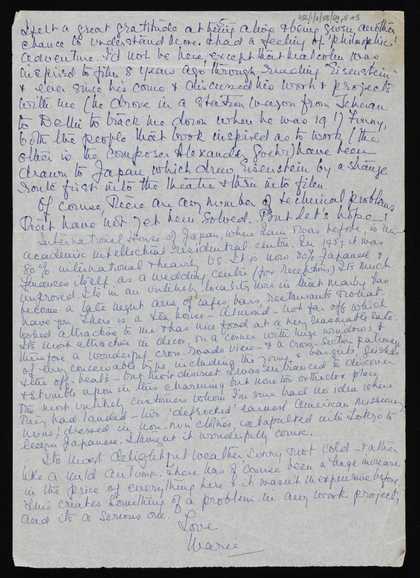 I felt a great gratitude at being alive & being given another
chance to understand more & had a feeling of 'philosophic'
adventure. I'd not be here except that Malcolm was
inspired to film 8 years ago through reading Eisenstein
& ever since has come & discussed his work & projects
with me (he drove in a station wagon from Teheran
to Delhi to track me down when he was 19!) Funny,
both the people that book inspired as to work (the
other is the composer Alexander Goehr) have been
drawn to Japan which drew Eisenstein by a strange
route first into the theatre & then into film.
Of course, there are any number of technical problems
that have not yet been solved. But let's hope!
International House of Japan, where I am
academic intellectual residential centre. In 1957 it was
80% international & mainly US. It is now 80% Japanese &
finances itself as a wedding centre (for receptions). Its much
improved. Its in an unlikely locality
become a late night area of cafes, bars, restaurants
have you. There is a tea house - Almond - not far off which
looked attractive to me & has nice food at a very reasonable rate.
Its most attractive in decor, on a corner with large windows &
therefore a wonderful cross-roads view - & a cross-section
of every conceivable type including the young
& the off-beat - but most decent. I was entranced to discover
& stumble upon in this charming but none too orthodox place
the most unlikely customers whom I'm sure had no idea where
they had landed - two 'defrocked' earnest American missionary
nuns, dressed in non-nun clothes, catapulted into Tokyo to
learn Japanese. I thought it wonderfully comic.
Its most delightful weather, sunny not cold - rather
like a mild autumn. There has of course been a huge increase
in the price of everything here & it wasn't inexpensive before.
This creates something of a problem in any work project,
and its a serious one.
Love
Marie